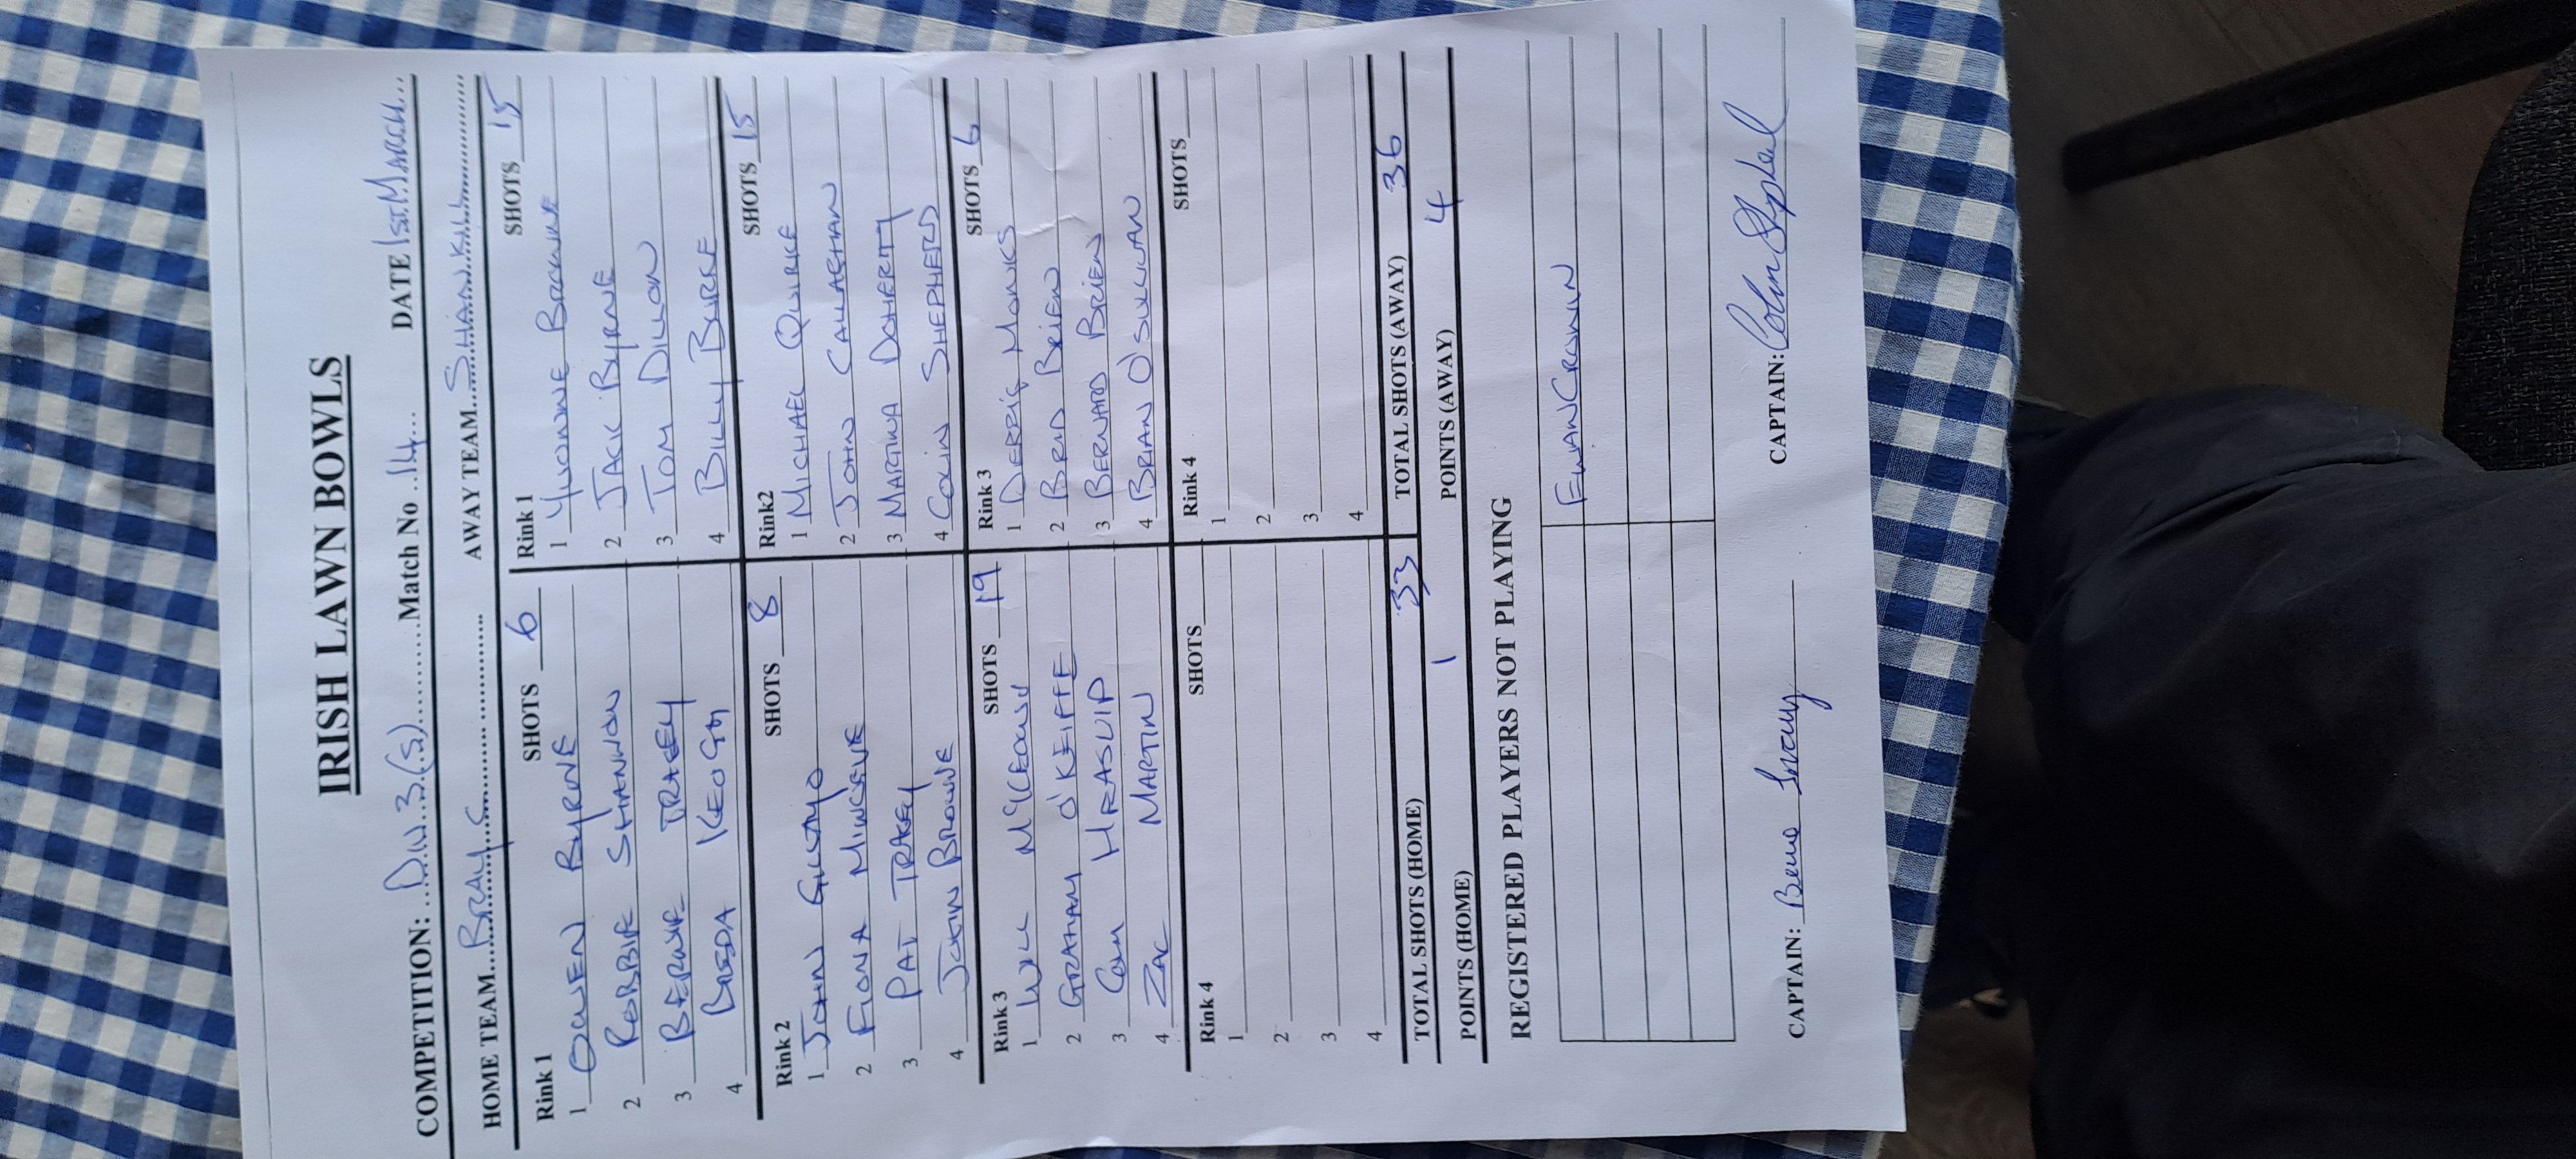 IRISH LAWN BOWLS
COMPETITION: DIV.3.(S) Match No 14 DATE 1st MARCH
HOME TEAM BRAY C AWAY TEAM SHANKILL
Rink 1 SHOTS 6 Rink 1 SHOTS 15
1 OWEN BYRNE 1 YVONNE BROWNE
2 ROBBIE SHANNON 2 JACK BYRNE
3 BERNIE TRACEY 3 TOM DILLON
4 BREDA KEOGH 4 BILLY BURKE
Rink 2 SHOTS 8 Rink2 SHOTS 15
1 JOHN 1 MICHAEL QUIRKE
2 FIONA 2 JOHN CALLAGHAN
3 PAT TRACEY 3 MARTINA DOHERTY
4 JOHN BROWNE 4 COLIN SHEPHERD
Rink 3 SHOTS 19 Rink 3 SHOTS 6
1 WILL 1 DERRIG MONKS
2 GRAHAM O'KEIFFE 2 BRID BRIEN
3 COLM HEASLIP 3 BERNARD BRIEN
4 ZAC MARTIN 4 BRIAN O'SULLIVAN
Rink 4 SHOTS Rink 4 SHOTS
1 1
2 2
3 3
4 4
TOTAL SHOTS (HOME) 33 TOTAL SHOTS (AWAY) 36
POINTS (HOME) 1 POINTS (AWAY) 4
REGISTERED PLAYERS NOT PLAYING
CRONIN
CAPTAIN: CAPTAIN: Colin Shepherd